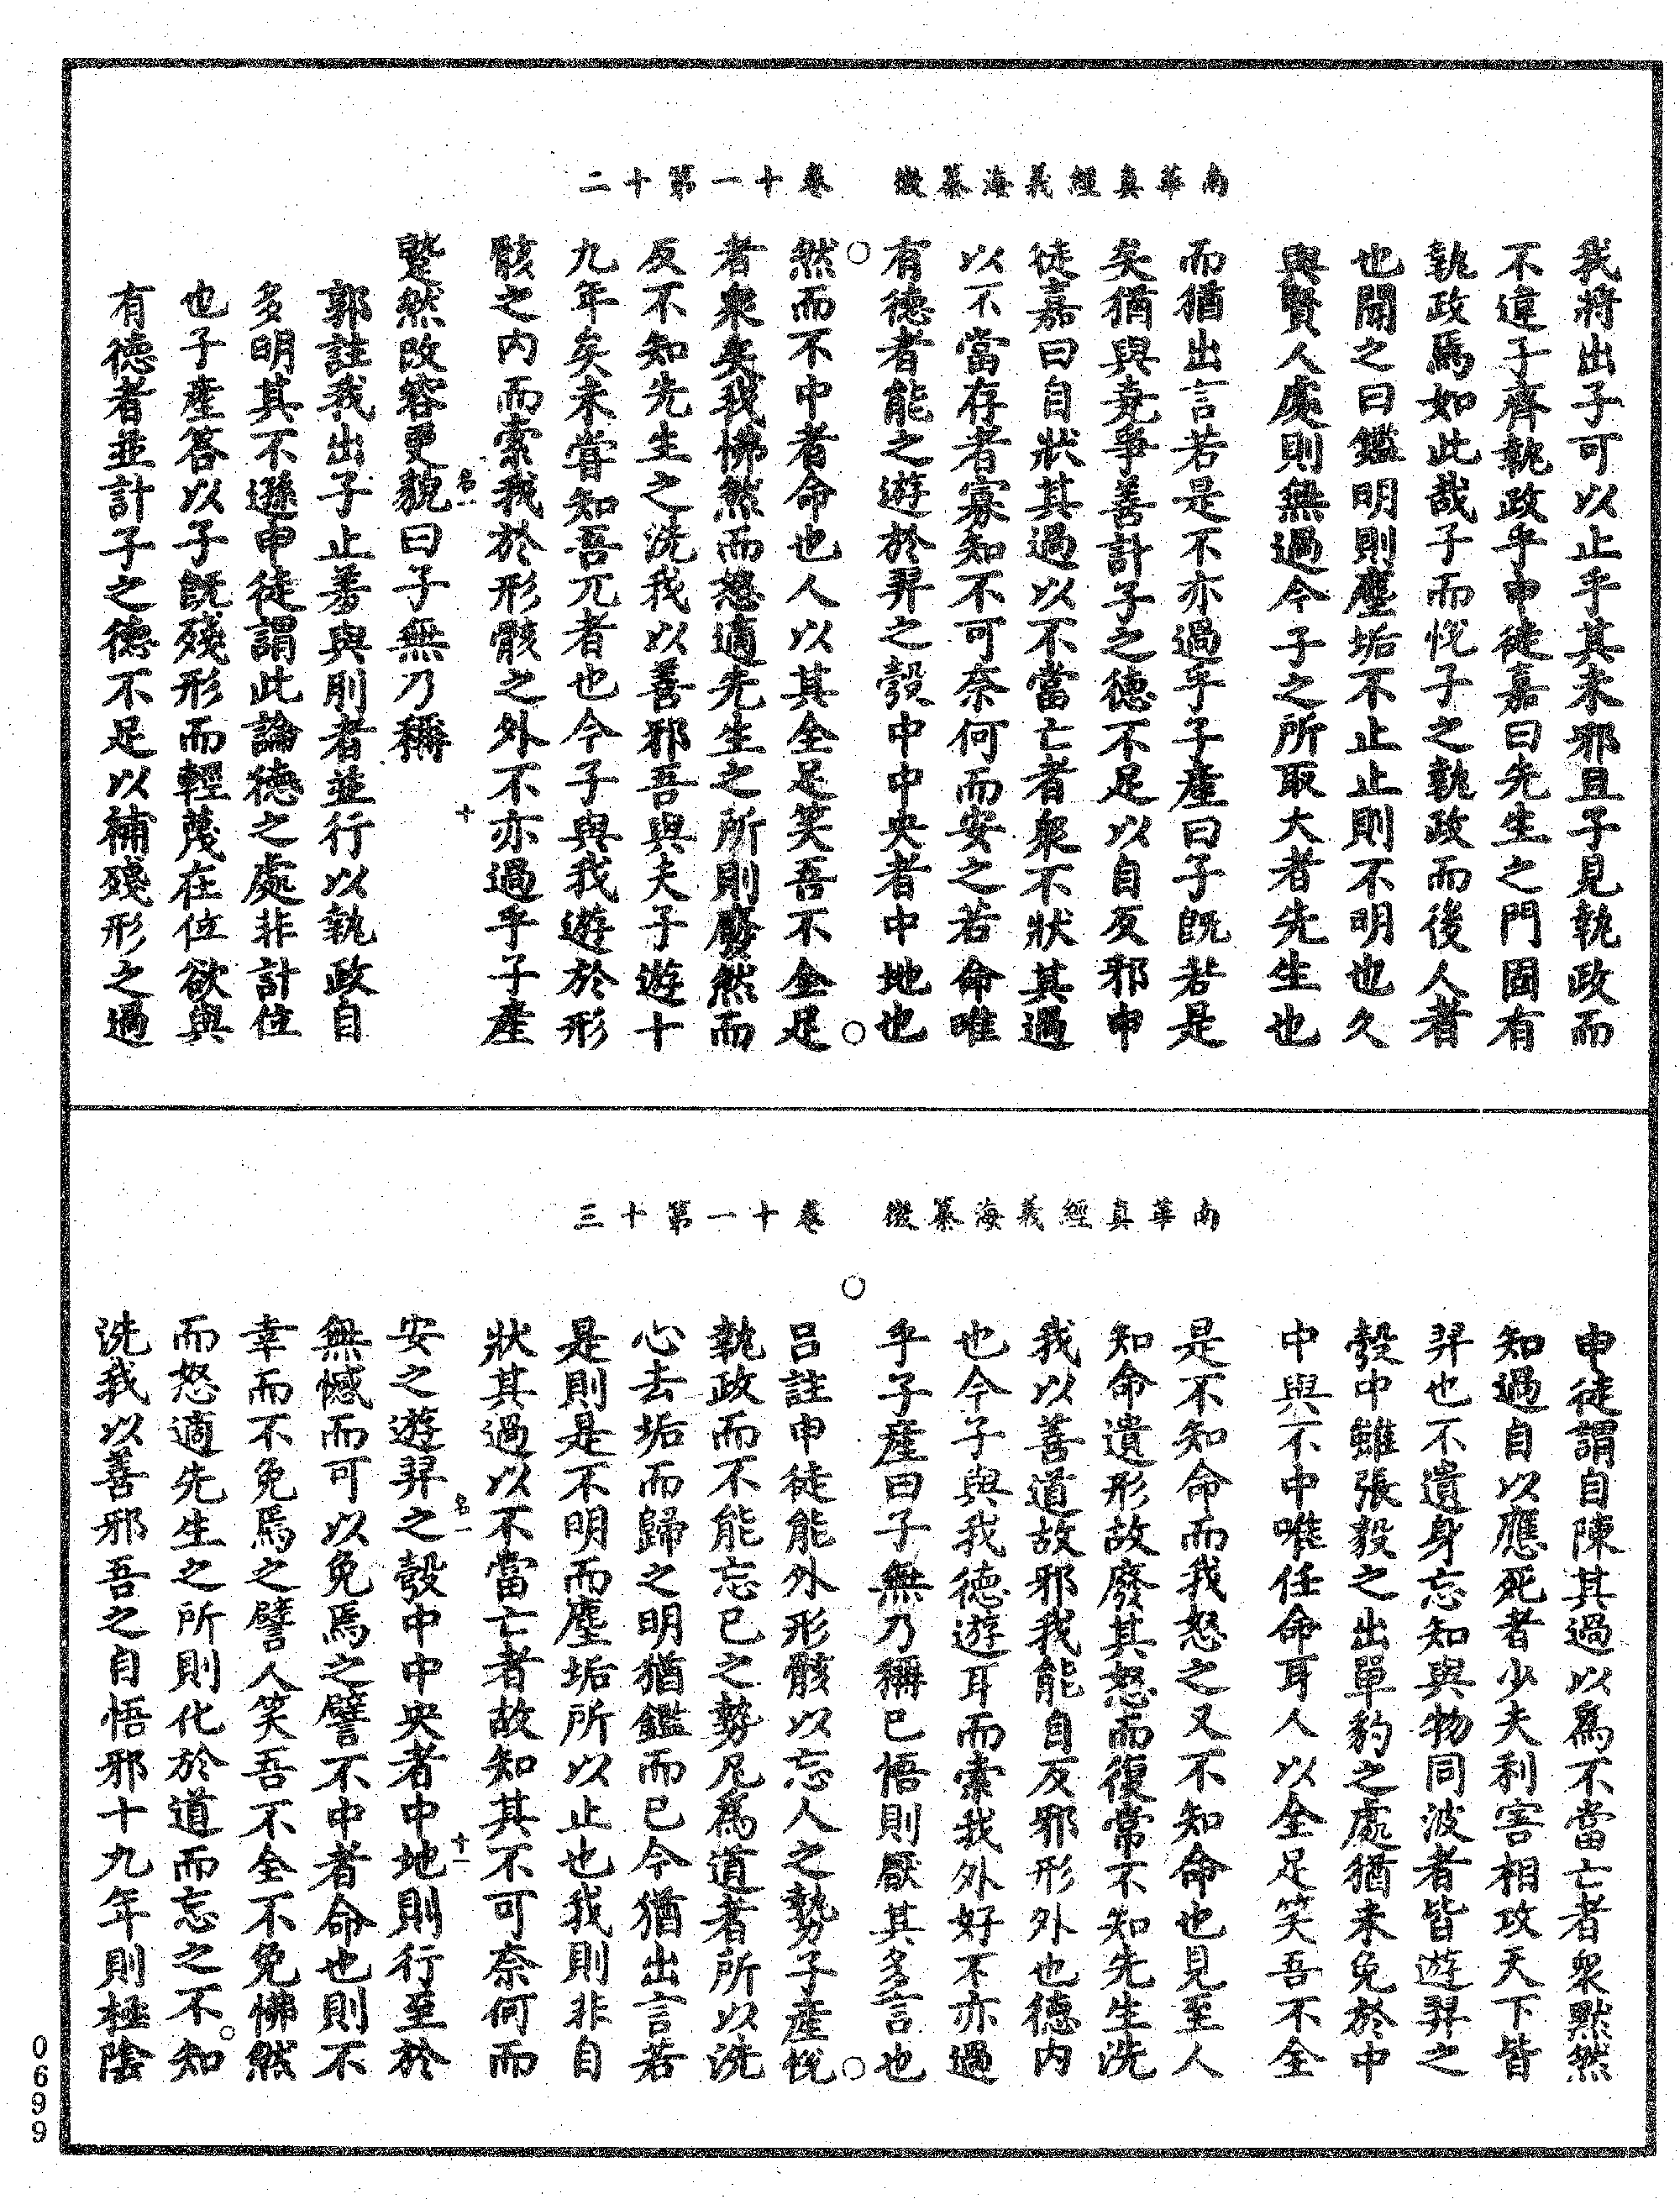 南華真經義海纂微　卷十一第十二
我將出子可以止乎其未邪且子見執政而
不違子齊執政乎申徒嘉曰先生之門固有
執政焉如此哉子而悅子之執政而後人者
也聞之曰鑑明則塵垢不止止則不明也久
與賢人處則無過今子之所取大者先生也
而猶出言若是不亦過乎子產曰子既若是
矣猶與堯爭善計子之德不足以自反邪申
徒嘉曰自狀其過以不當亡者衆不狀其過
以不當存者寡知不可奈何而安之若命唯
有德者能之遊於羿之彀中中央者中地也
然而不中者命也人以其全足笑吾不全足
者衆矣我怫然而怒適先生之所則廢然而
反不知先生之洗我以善邪吾與夫子遊十
九年矣未嘗知吾兀者也今子與我遊於形
骸之內而索我於形骸之外不亦過乎子產
蹵然改容更貌曰子無乃稱
名一　十
郭註我出子止羞與刖者並行以執政自
多明其不遜申徒謂此論德之處非計位
也子產答以子既殘形而輕蔑在位欲與
有德者並計子之德不足以補殘形之過
南華真經義海纂微　卷十一第十三
申徒謂自陳其過以為不當亡者衆默然
知過自以應死者少夫利害相攻天下皆
羿也不遺身忘知與物同波者皆遊羿之
彀中雖張毅之出單豹之處猶未免於中
中與不中唯任命耳人以全足笑吾不全
是不知命而我怒之又不知命也見至人
知命遺形故廢其怒而復常不知先生洗
我以善道故邪我能自反邪形外也德內
也今子與我德遊耳而索我外好不亦過
乎子產曰子無乃稱已悟則厭其多言也
呂註申徒能外形骸以忘人之勢子產悅
執政而不能忘已之勢凡為道者所以洗
心去垢而歸之明猶鑑而已今猶出言若
是則是不明而塵垢所以止也我則非自
狀其過以不當亡者故知其不可奈何而
安之遊羿之彀中中央者中地則行至於
名一　十一
無憾而可以免焉之譬不中者命也則不
幸而不免焉之譬人笑吾不全不免怫然
而怒適先生之所則化於道而忘之不知
洗我以善邪吾之自悟邪十九年則極陰
0699